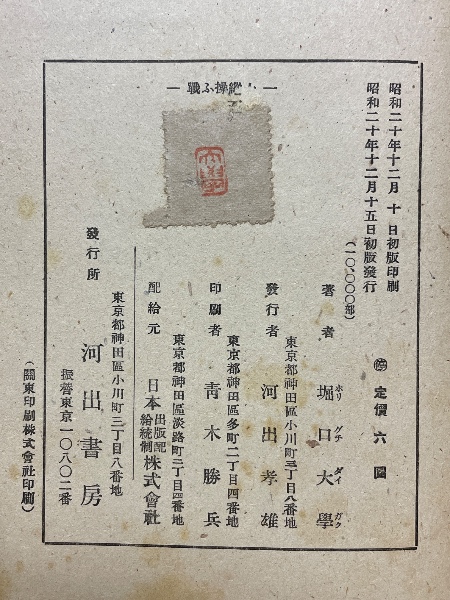 戰ふ操縱
昭和二十年十二月 十 日初版印刷
昭和二十年十二月十五日初版發行
(一〇,〇〇〇部)
定價六圓
著者 堀口大學
ホリ グチ ダイ ガク
東京都神田區小川町三丁目八番地
發行者 河出孝雄
東京都神田區多町二丁目四番地
印刷者 靑木勝兵
東京都神田區淡路町二丁目四番地
配給元 日本出版配給統制株式會社
東京都神田區小川町三丁目八番地
發行所 河出書房
振替東京一〇八〇二番
(關東印刷株式會社印刷)